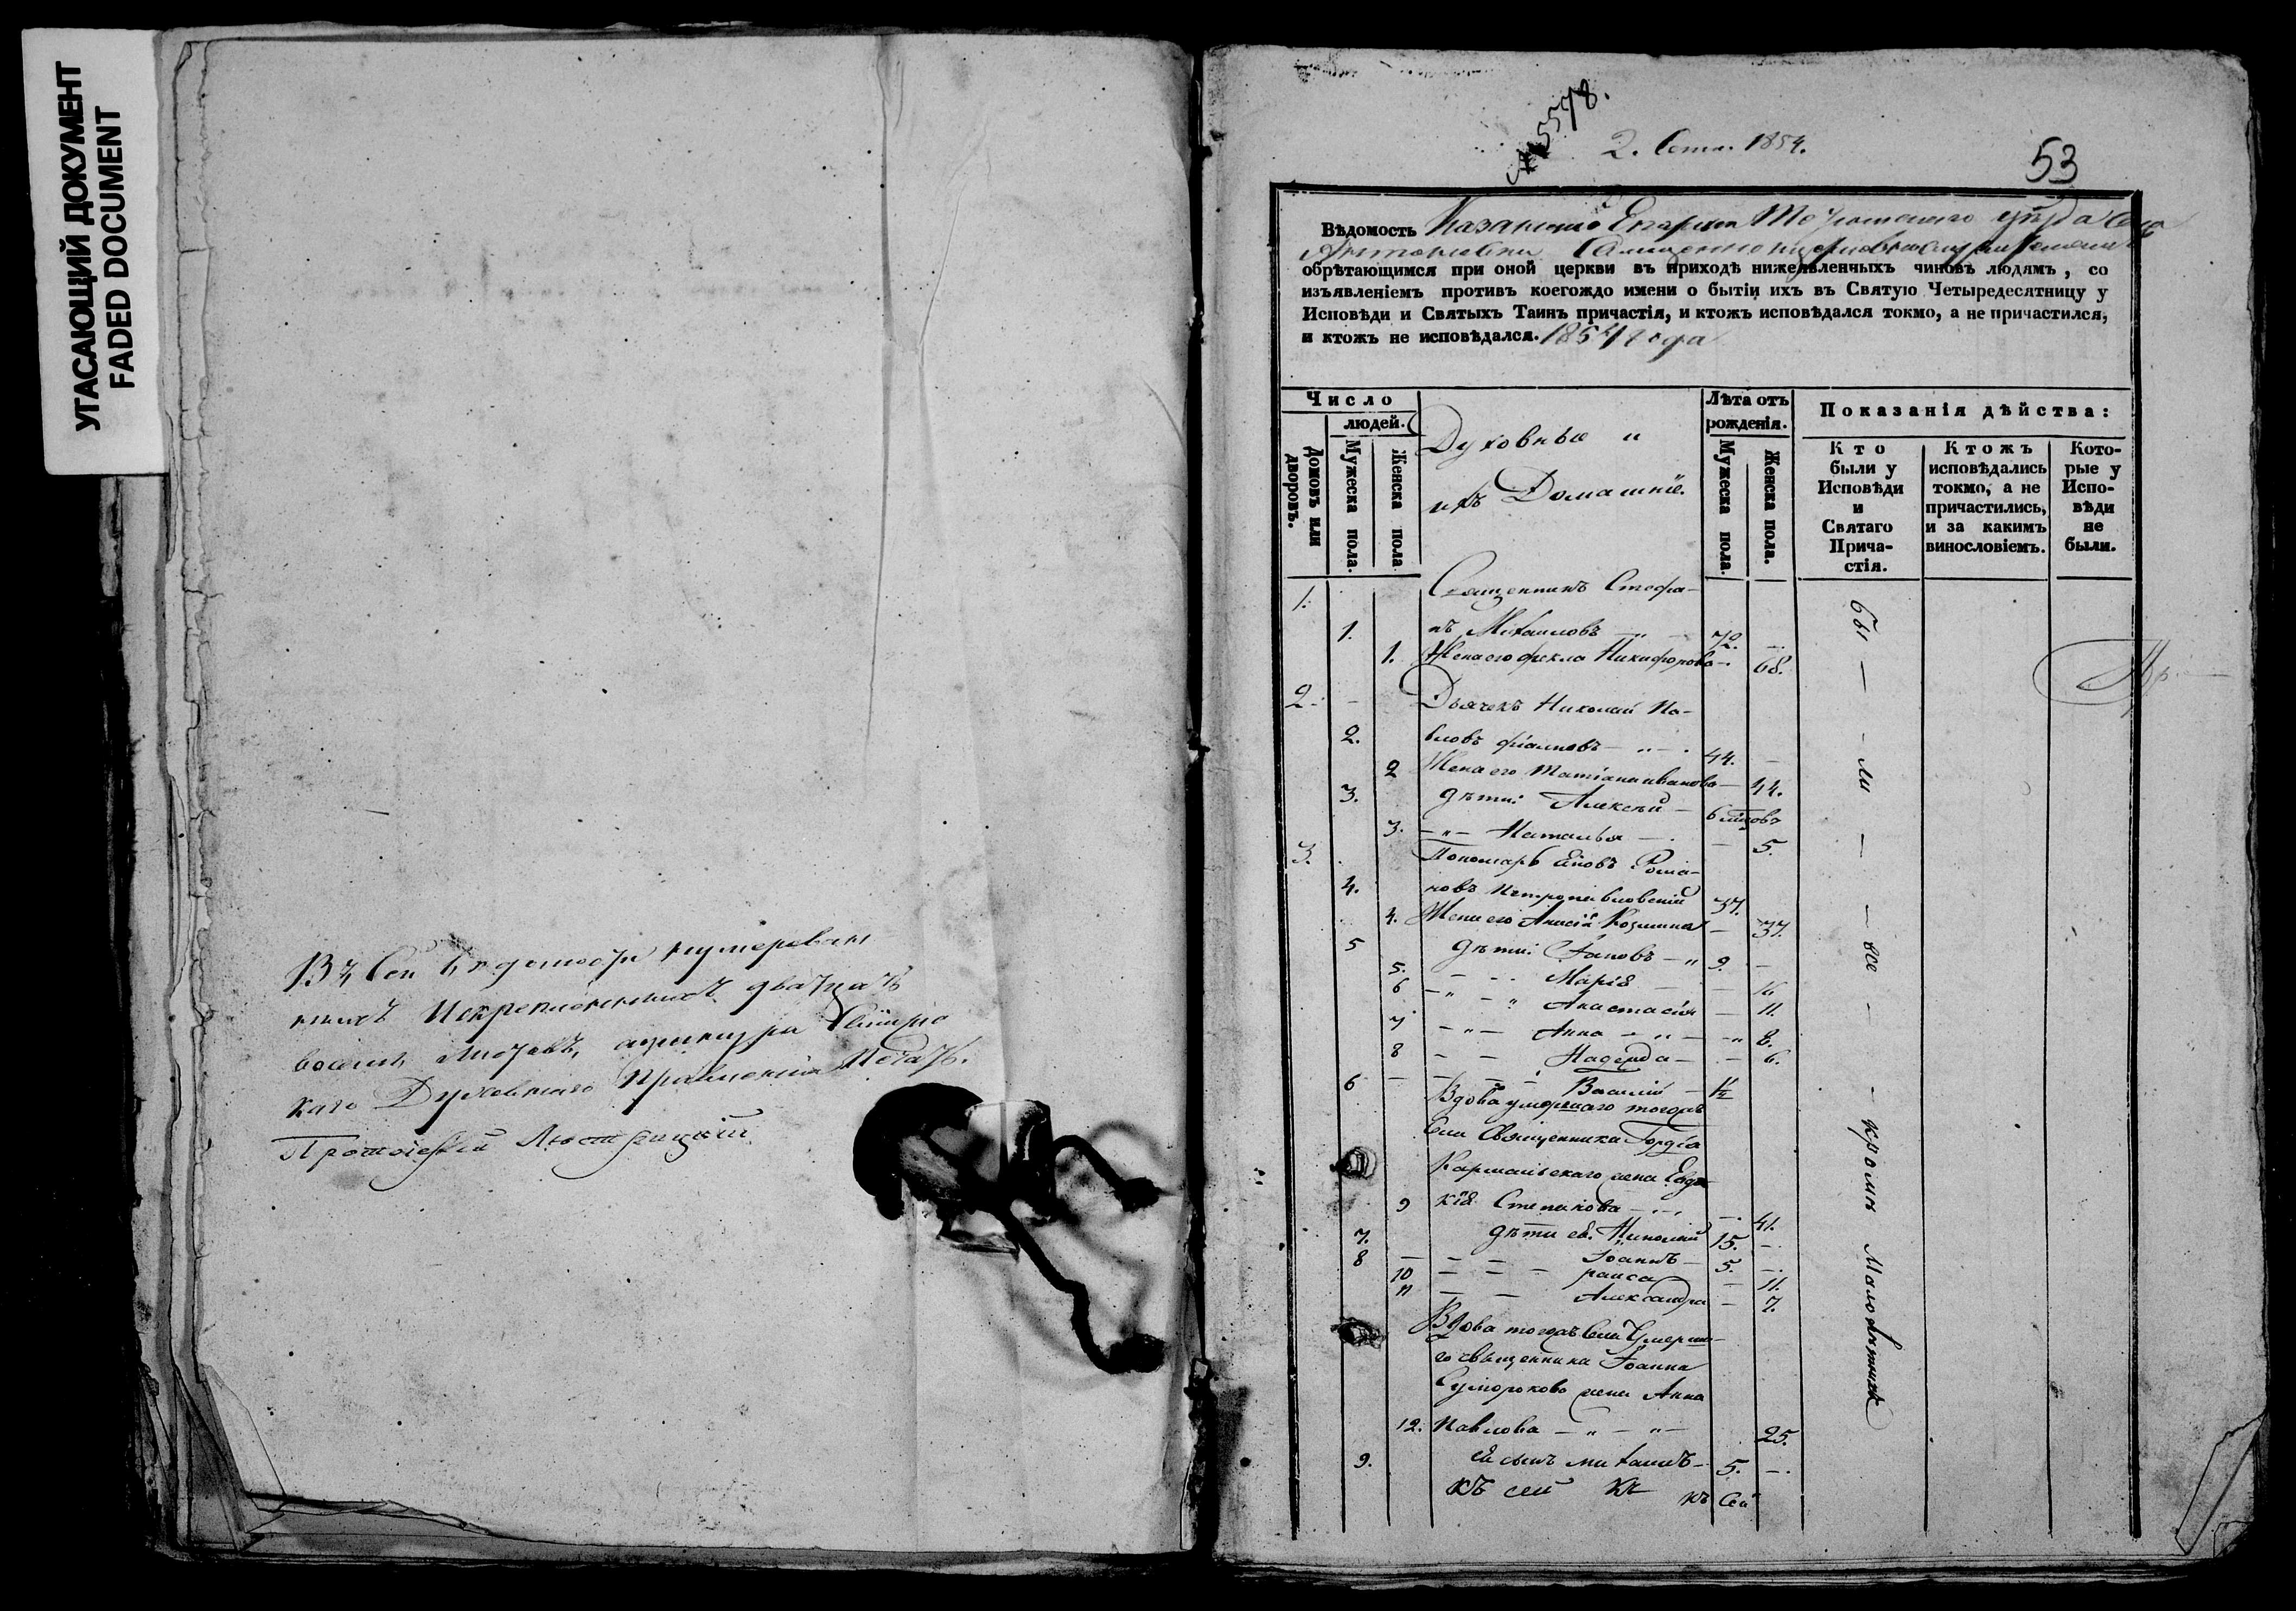 УГАСАЮЩИЙ ДОКУМЕНТ
FADED DOCUMENT
Въ сей вѣдомости нумерован
ныхъ и скрепленныхъ двадцать
восемь листовъ, а
каго Духовнаго Правленія печать.
Протоіерей
№ 5578.
2. Сент. 1854.
53
Вѣдомость Казанской Епархіи Тетюшскаго уѣзда села
Антоновки
обрѣтающимся при оной церкви въ приходѣ нижеявленныхъ чиновъ людямъ, со
изъявленіемъ противъ коегождо имени о бытіи ихъ въ Святую Четыредесятницу у
Исповѣди и Святыхъ Таинъ причастія, и ктожъ исповѣдался токмо, а не причастился,
и ктожъ не исповѣдался. 1854 года
Число
людей.
Домовъ или дворовъ.
Мужеска пола.
Женска пола
Духовные и
ихъ Домашніе.
Лѣта отъ
рожденія.
Мужеска пола.
Женска пола.
Показанія дѣйства:
Кто
были у
Исповѣди
и
Святаго
Прича-
стія.
Ктожъ
исповѣдались
токмо, а не
причастились,
и за какимъ
винословіемъ.
Кото-
рые у
Испо-
вѣди
не
были.
1. Священникъ Стефа-
1. нъ Михаиловъ — „ — 72. —
1. Жена его Фекла Никифорова —. 68.
2. — Дьячекъ Николай Па-
2. вловъ — „ — . 44. —
2 Жена его Татіана Иванова — 44.
3. дѣти: Алексѣй — 6 мцовъ
3. — „ — Наталья — . — 5.
3. Пономарь Іаковъ Рома-
4. новъ Петропавловскій 37.
4. Жена его Анисія Козмина — 37.
5 дѣти: Іаковъ — „ 9. —
5. — — Марія — — 16
6 — „ — „ Анастасія — 11.
7 — „ — Анна — „ — — „ 8.
8 — — Надежда — — 6.
6 — — — — Василій — 1/2
Вдова умершаго тогожъ
села Священника Гордіа
Кармальскаго жена Евдо
9 кія Степанова — . — 41.
7. дѣти ея: Николай 15. —
8 — — — Іоаннъ — 5. —.
10 — — — раиса — 11.
11 — — Александра — 7.
Вдова тогожъ села Умерша-
го священника Іоанна
Суморокова жена Анна
12. Павлова — „ — „ — 25.
9. Ея сынъ михаилъ — 5. —.
къ сей къ къ сей
бы — — ли — — все — — кромѣ Малолѣтнихъ